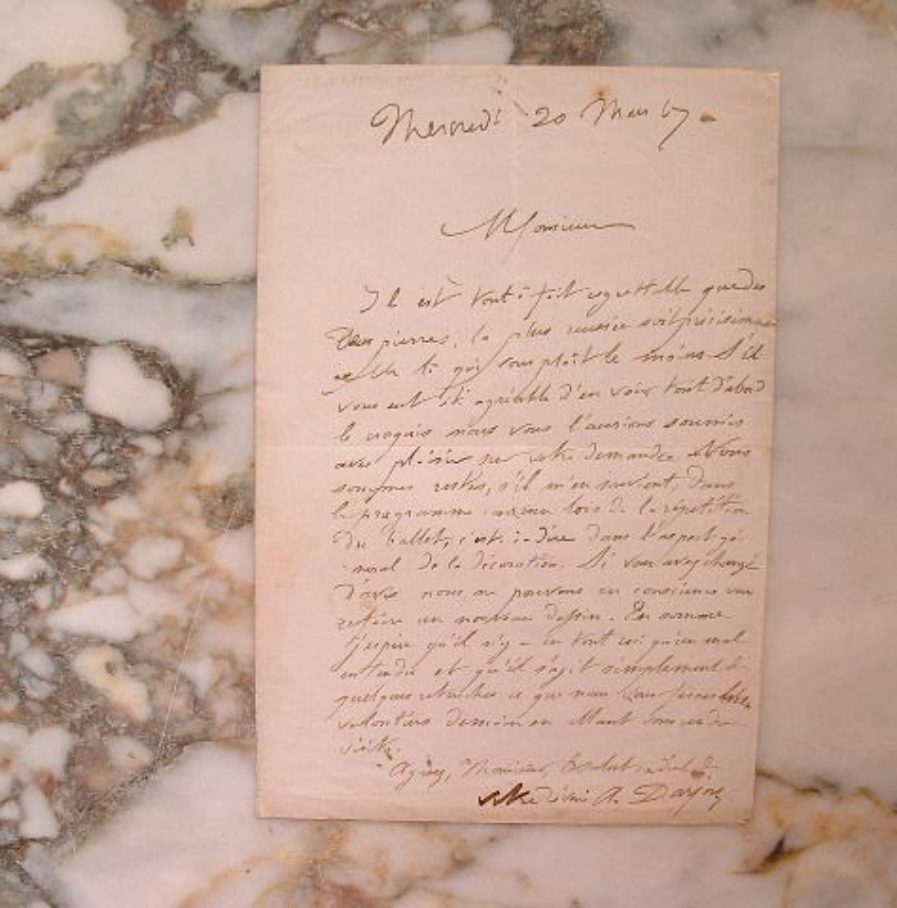 Mercredi 20 Mars 67
Monsieur
Il est tout à fait regrettable que des
deux pierres, la plus réussie soit précisément
celle là qui vous plaît le moins. S'il
vous eut été agréable d'en voir tout d'abord
le croquis nous vous l'aurions soumis
avec plaisir sur votre demande. Nous
sommes restés, s'il m'en souvient, dans
le programme convenu lors de la répétition
du ballet, c'est-à-dire dans l'aspect gé
néral de la décoration. Si vous avez changé
d'avis nous ne pouvons en conscience vous
refaire un nouveau dessin. En somme
j'espère qu'il n'y a en tout ceci qu'un mal
entendu et qu'il s'agit simplement de
quelques retouches ce que nous vous ferons
volontiers demain en allant vous rendre
visite.
Agréez, Monsieur, salut cordial de
votre A.